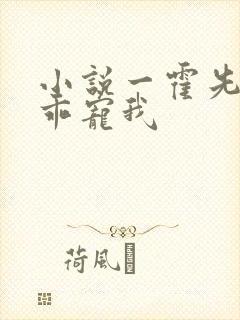 小説一霍先
乖寵我
荷風